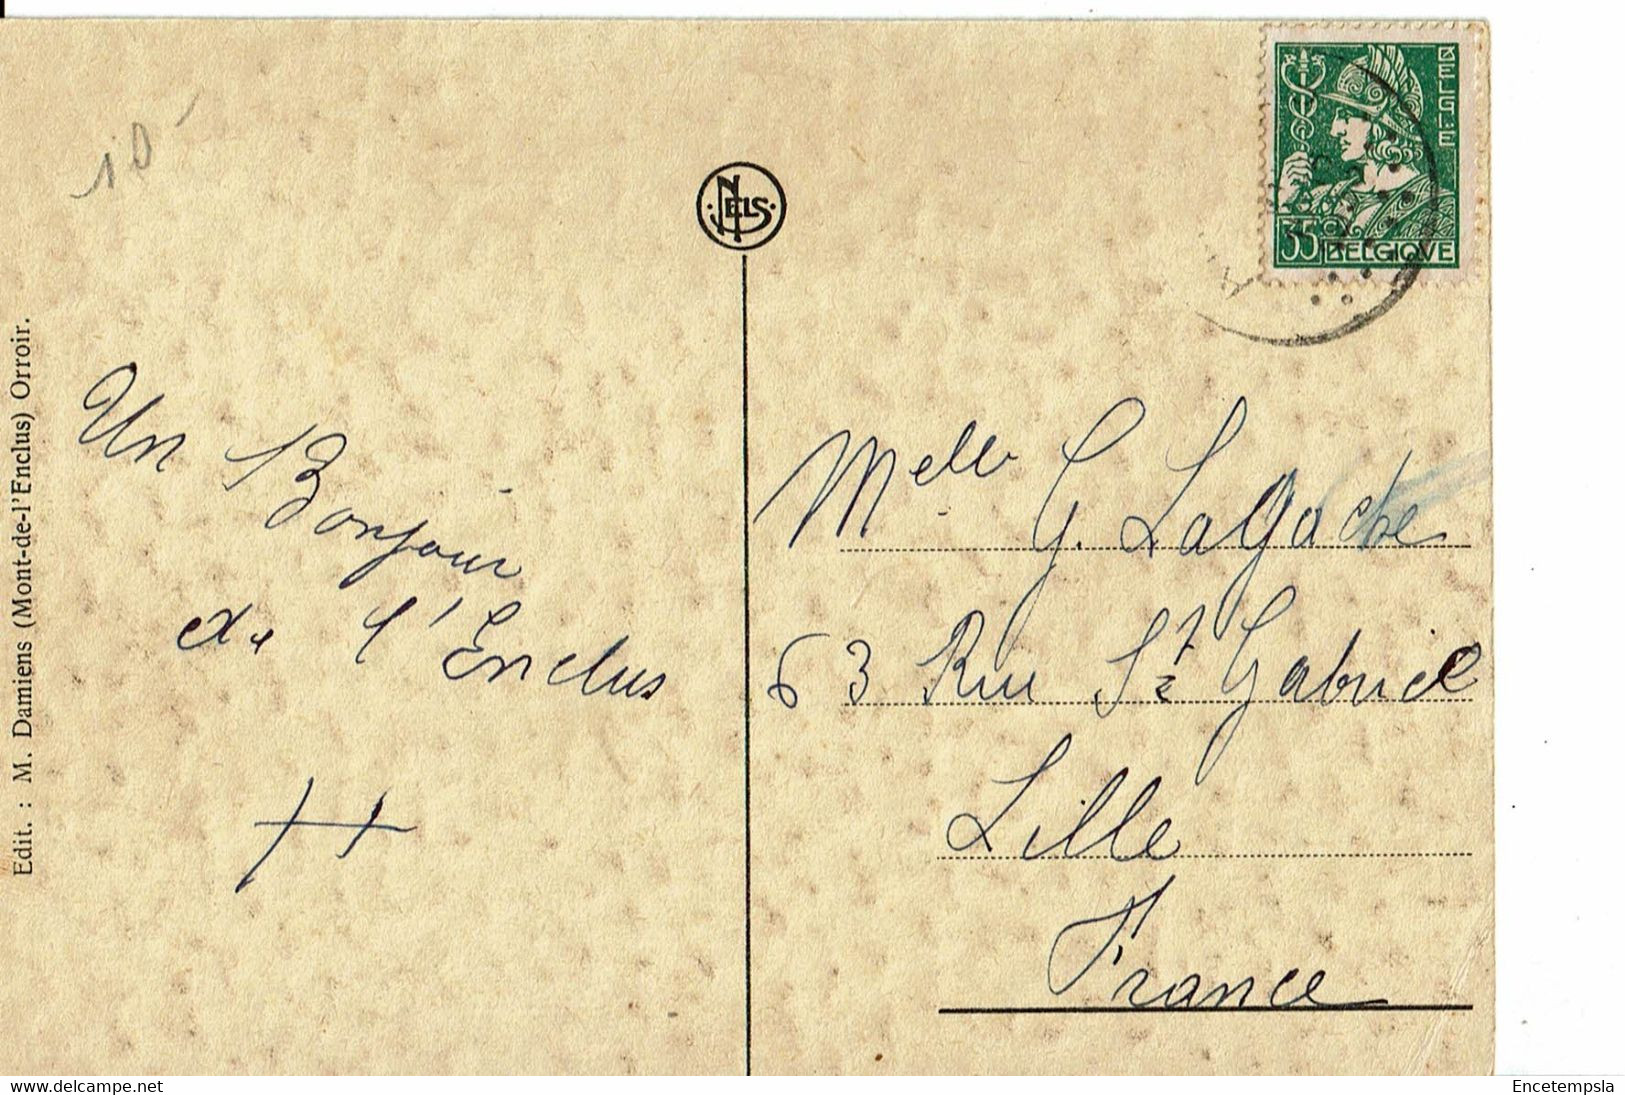 10
NELS
BELGIË
35 BELGIQUE
Edit. : M. Damiens (Mont-de-l'Enclus) Orroir.
Un Bonjour
de l'Enclus
H
Melle G. Lagache
63 Rue St Gabriel
Lille
France
www.delcampe.net
Encetempsla